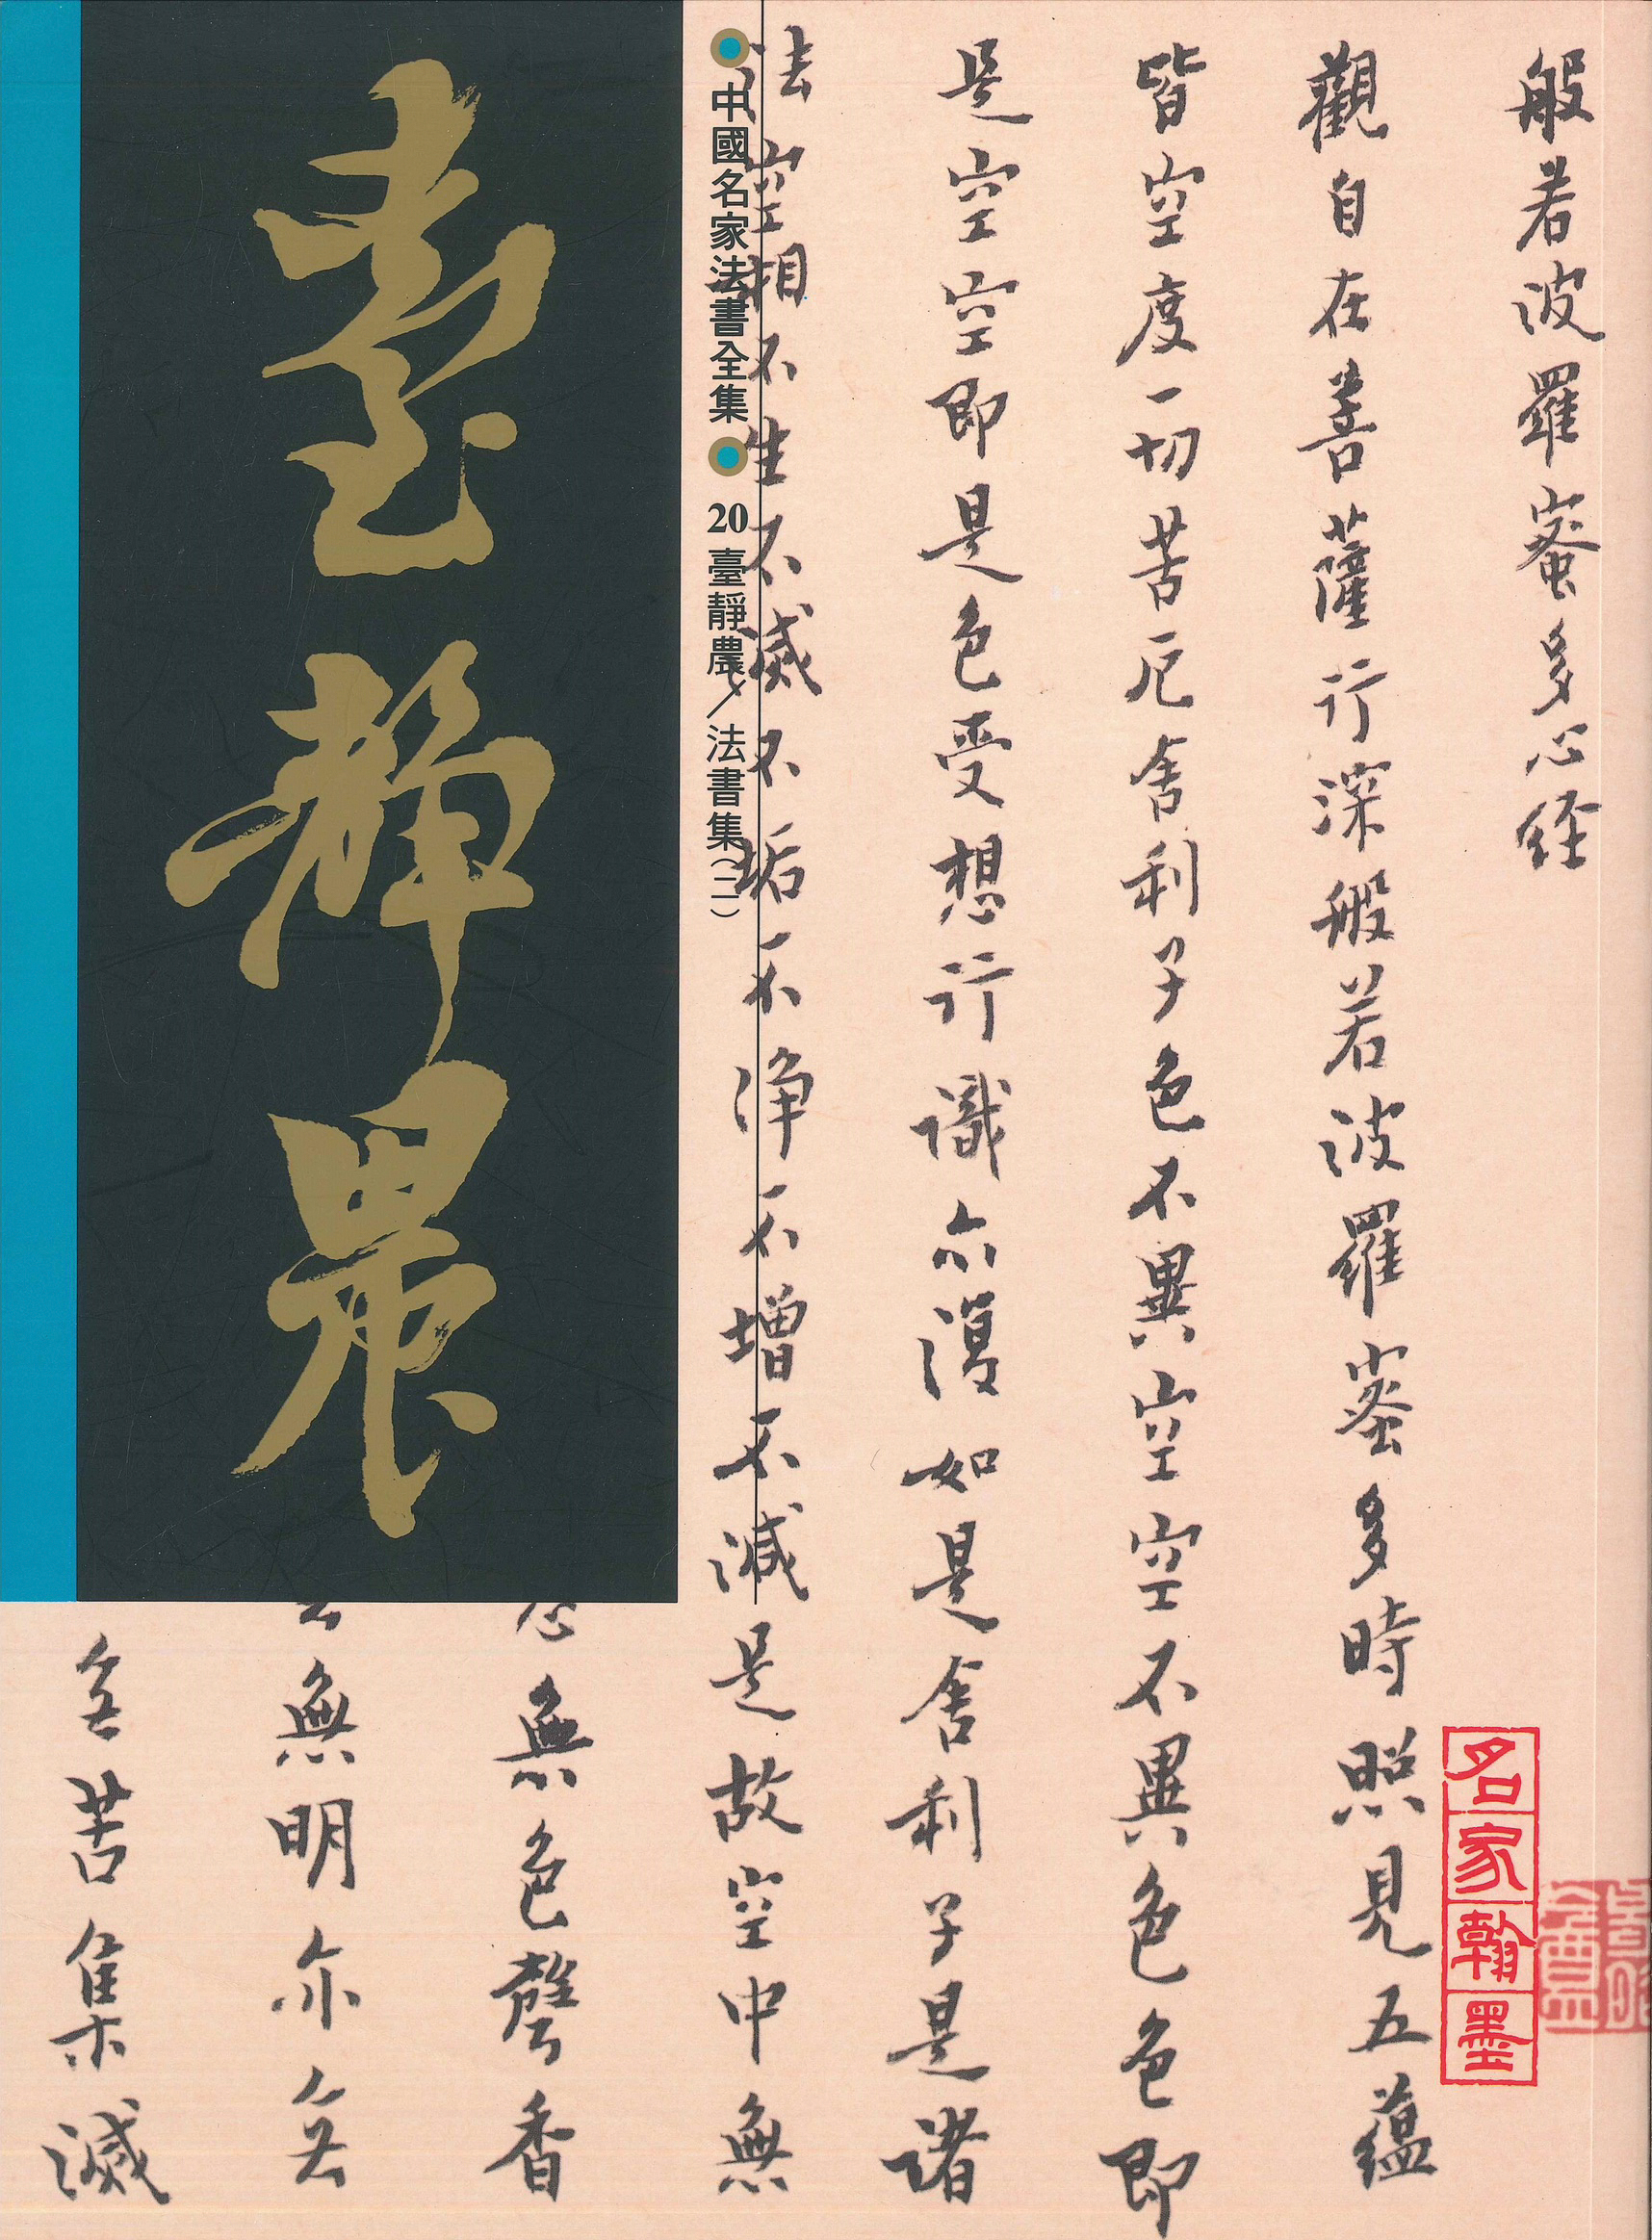 般若波羅蜜多心経
觀自在菩薩行深般若波羅蜜多時照見五蘊
皆空度一切苦厄舍利子色不異空空不異色色即
是空空即是色受想行識亦復如是舍利子是諸
法空相不生不滅不垢不淨不增不減是故空中無
中國名家法書全集
20臺靜農/法書集(二)
臺靜農
無色聲香
無明亦无
无苦集滅
名家翰墨